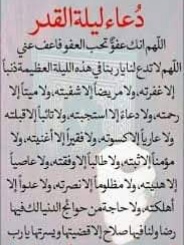 دعاء ليلة القدر
اللهم انك عفو تحب العفو فاعف عني
اللهم لا تدع لنا يا ربنا في هذه الليلة العظيمة ذنباً
إلا غفرته، ولا مريضاً إلا شفيته، ولا ميتاً إلا
رحمته، ولا دعاءً إلا استجبته، ولا تائباً إلا قبلته
ولا عارياً إلا كسوته، ولا فقيراً إلا أغنيته، ولا
مؤمناً إلا ثبته، ولا طالباً إلا وفقته، ولا عاصياً
إلا هديته، ولا مظلوماً إلا نصرته، ولا عدواً إلا
أهلكته، ولا حاجة من حوائج الدنيا لك فيها
رضا ولنا فيها صلاح إلا قضيتها ويسرتها يا رب